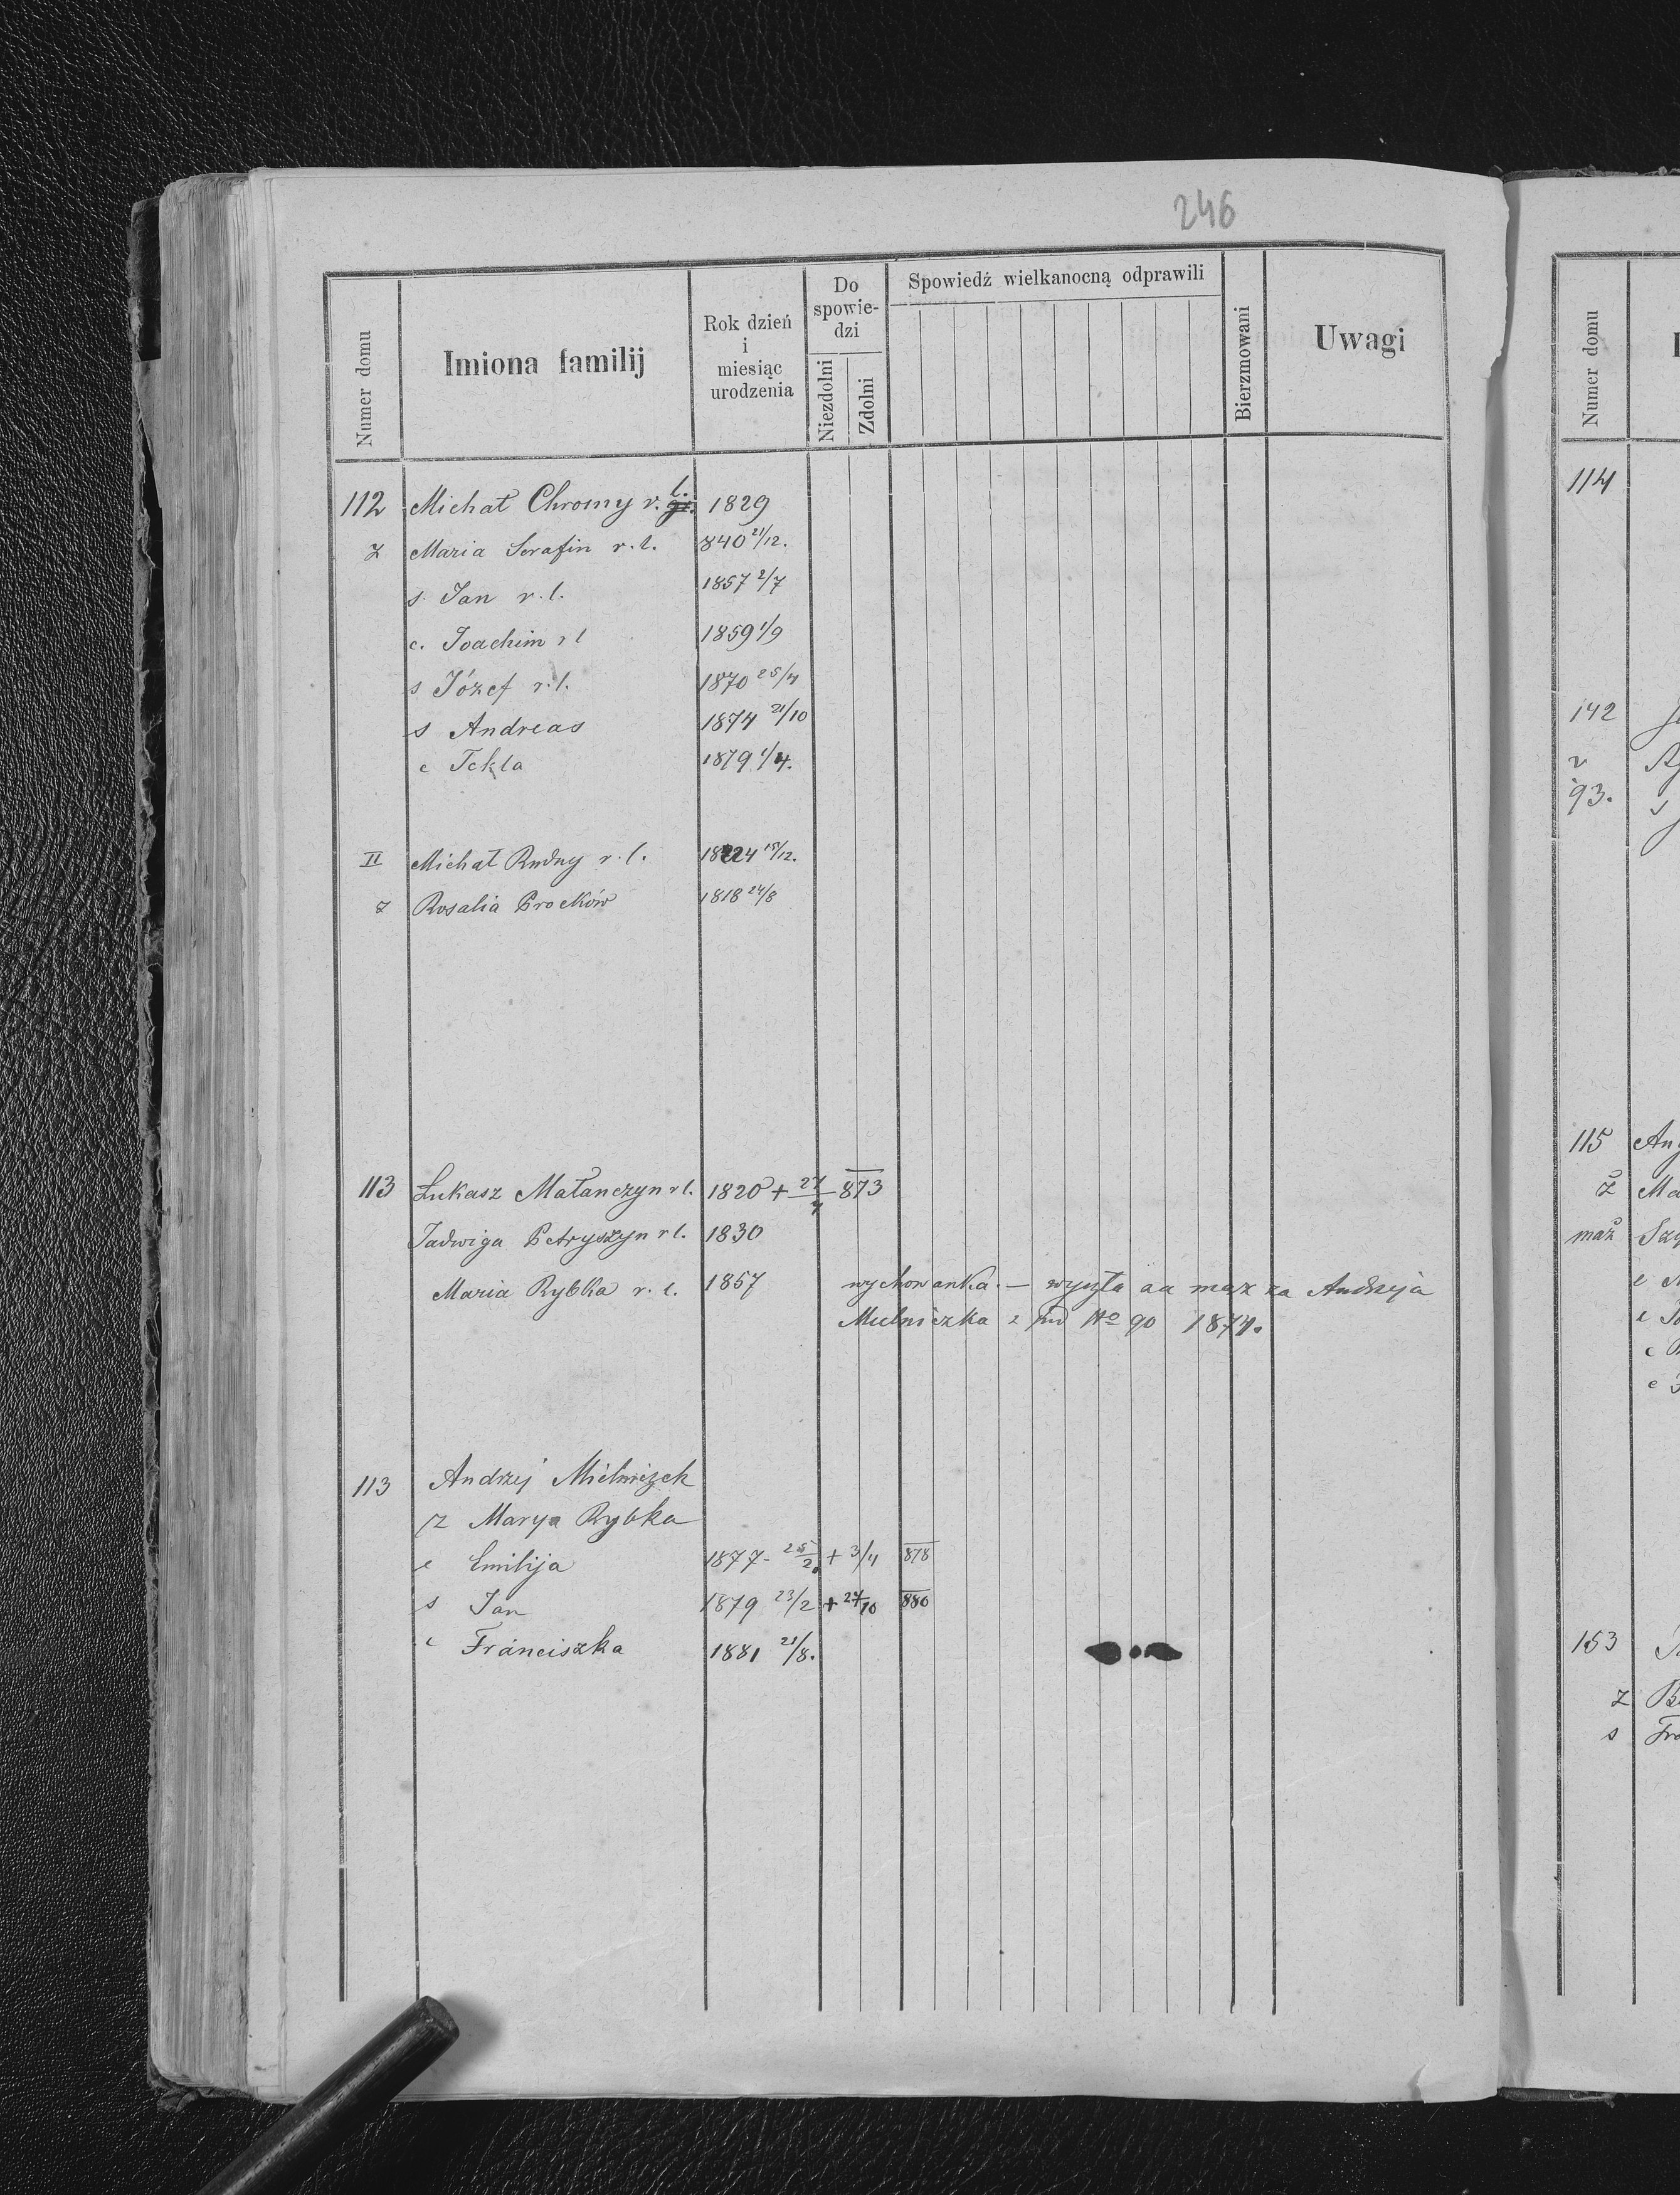 246
Numer domu
Imiona familij
Rok dzień
i
miesiąc
urodzenia
Do
spowie-
dzi
Niezdolni
Zdolni
Spowiedź wielkanocną odprawili
Bierzmowani
Uwagi
112 Michał Chromy r. l. 1829
z Maria Serafin r. l. 840 21/12.
s. Jan r. l. 1857 2/7
c. Joachim r l 1859 1/9
s Józef r. l. 1870 25/4
s Andreas 1874 21/10
c Tekla 1879 1/4.
II Michał Rudny r. l. 1824 15/12.
z Rosalia Procków 1818 24/8
113 Łukasz Małanczyn r l. 1820 + 27/7 873
Jadwiga Petryszyn r l. 1830
Maria Rybka r. l. 1857 wychowanka. — wyszła za maz za Andrzeja
Mielniczka z pod No 90 1874.
113 Andrzej Mielniczek
z Marya Rybka
c Emilija 1877 - 25/2. + 3/4 878
s Jan 1879 23/2 + 27/10 880
c Franciszka 1881 21/8.
Numer domu
114
142
z
93.
s
115
ż
maż
c
c
c
c
153
z
s